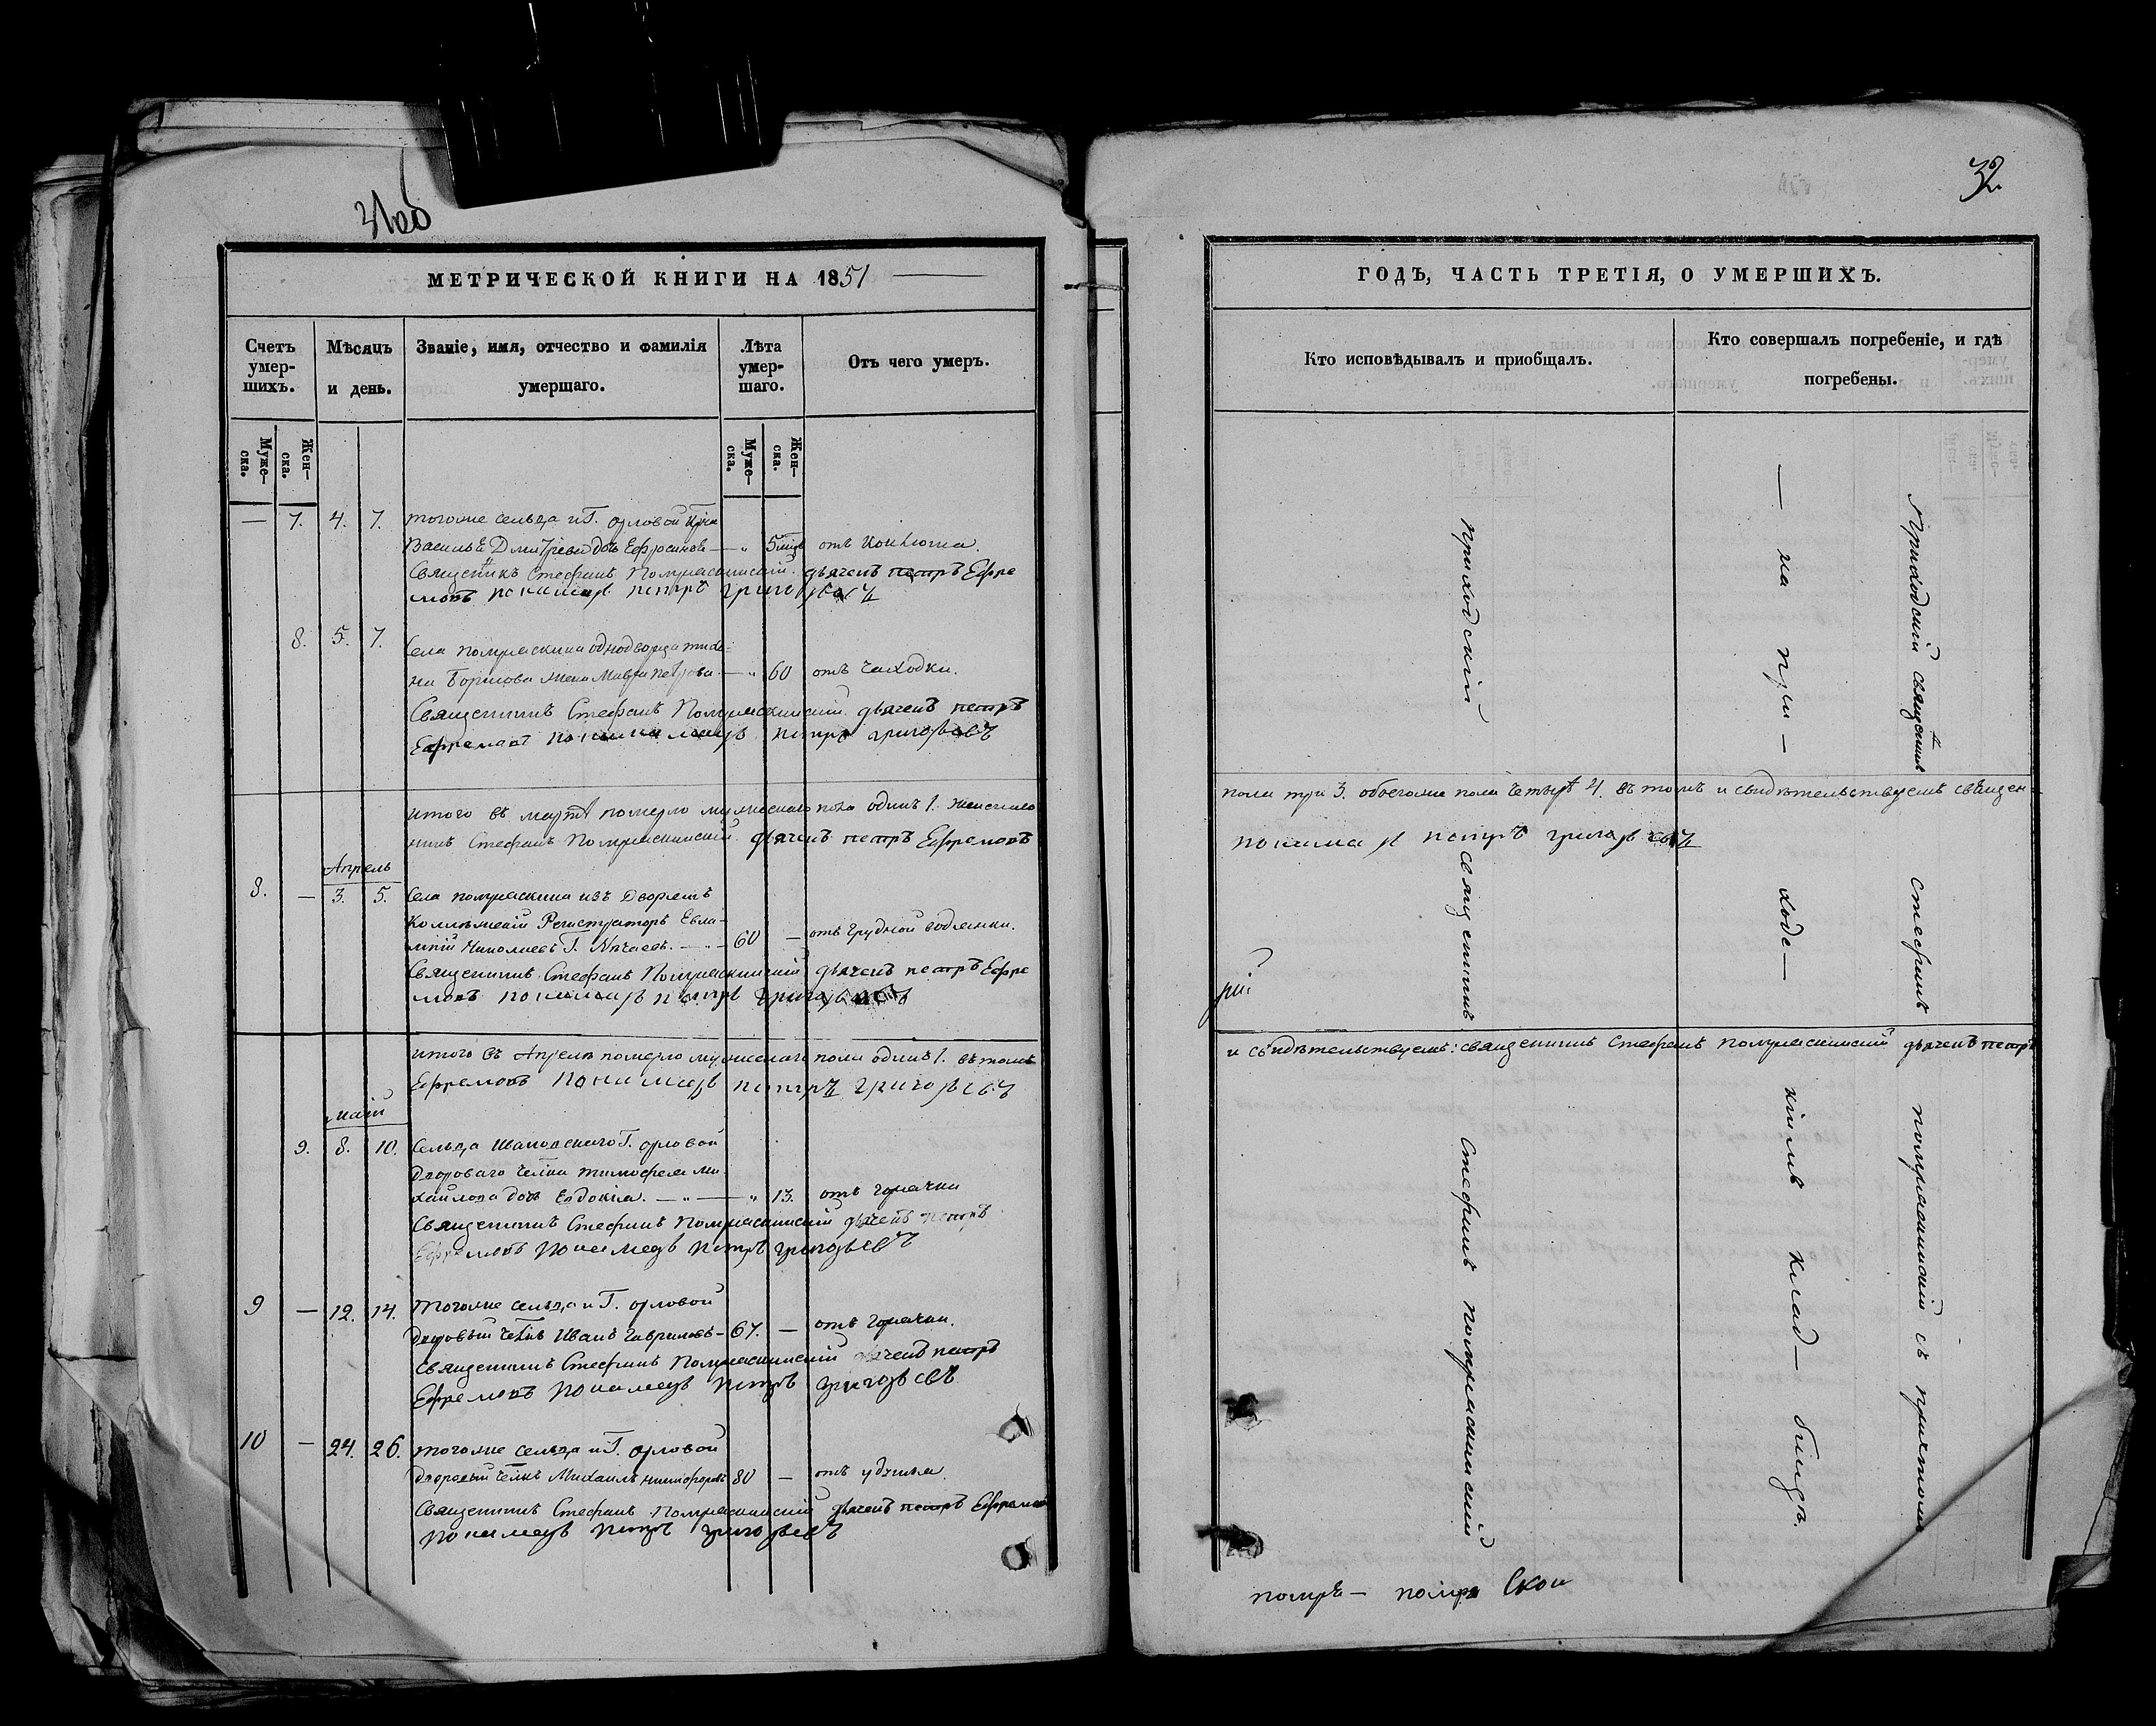 31об
МЕТРИЧЕСКОЙ КНИГИ НА 1851
Счетъ умер-шихъ.
Мѣсяцъ и день.
Званіе, имя, отчество и фамилія умершаго.
Лѣта умер-шаго.
Отъ чего умеръ.
Муже-ска.
Жен-ска.
Муже-ска.
Жен-ска.
— 7. 4. 7. тогоже сельца и Г. орловой
Василья Дмитрева дочь Ефросинія — " 5
Священникъ Стефанъ дьячекъ петръ Ефре
мовъ пономарь петръ григорьевъ
8. 5. 7. Села однодворца тихо-
на Борисова жена Мавра петрова — " 60 отъ чаходки.
Священникъ Стефанъ дьячекъ петръ
Ефремовъ пономарь петръ григорьевъ
итого въ мартѣ померло мужескаго пола одинъ 1. женскаго
никъ Стефанъ дьячекъ петръ Ефремовъ
Апрель
8. — 3. 5. Села изъ Дворянъ
Коллежскій Регистраторъ Евла-
мпій Николаевъ Г. Нечаевъ. — " — 60 — отъ грудной водянки.
Священникъ Стефанъ дьячекъ петръ Ефре
мовъ пономарь петръ григорьевъ
итого въ Апрелѣ померло мужескаго пола одинъ 1. въ томъ
Ефремовъ пономарь петръ григорьевъ
маій
9. 8. 10. Сельца Г. орловой
Двороваго тимофея ми
хайлова дочь Евдокіа. — " — " 13. отъ горячки
Священникъ Стефанъ дьячекъ петръ
Ефремовъ пономарь петръ григорьевъ
9 — 12. 14. Тогоже сельца и Г. орловой
дворовый Иванъ Гавриловъ — 67. — отъ горячки.
Священникъ Стефанъ дьячекъ петръ
Ефремовъ пономарь петръ григорьевъ
10 — 24. 26. тогоже сельца и Г. орловой
дворовый Михаилъ никифоровъ 80 — отъ удушья.
Священникъ Стефанъ дьячекъ петръ Ефремовъ
пономарь петръ григорьевъ
32
ГОДЪ, ЧАСТЬ ТРЕТІЯ, О УМЕРШИХЪ.
Кто исповѣдывалъ и приобщалъ.
Кто совершалъ погребеніе, и гдѣ погребены.
приходскій
священникъ
Стефанъ
— на при — ходс — комъ клад — бищѣ.
Приходскій священникъ
стефанъ
съ причтомъ
пола три 3. обоегоже пола четыре 4. въ томъ и свидѣтельствуемъ священ-
пономарь петръ григорьевъ
и свидѣтельствуемъ: священникъ Стефанъ дьячекъ петръ